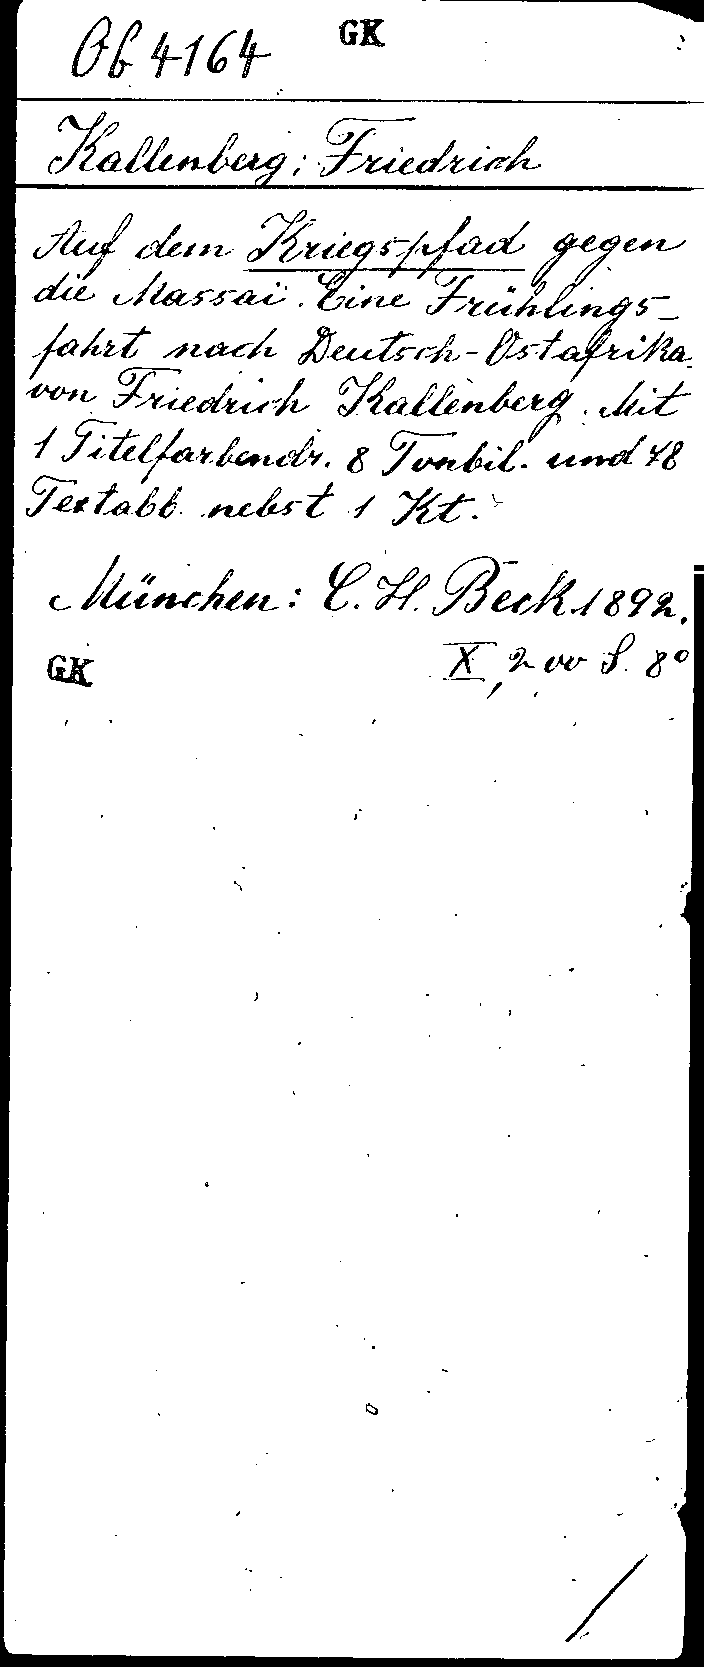 Ob 4164 GK
Kallenberg; Friedrich
Auf dem Kriegspfad gegen
die Massai. Eine Frühlings-
fahrt nach Deutsch-Ostafrika.
von Friedrich Kallenberg. Mit
1 Titelfarbendr. 8 Tonbil. und 48
Textabb. nebst 1 Kt.
München: C. H. Beck 1892.
GK X, 200 S. 8°